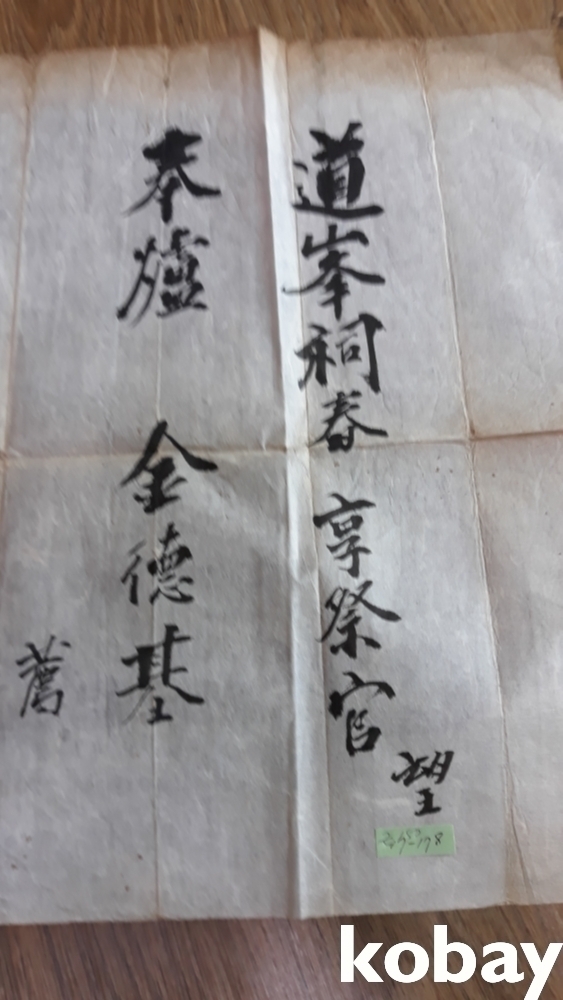 道峯祠春 享祭官
望
奉爐 金德基
薦
kobay